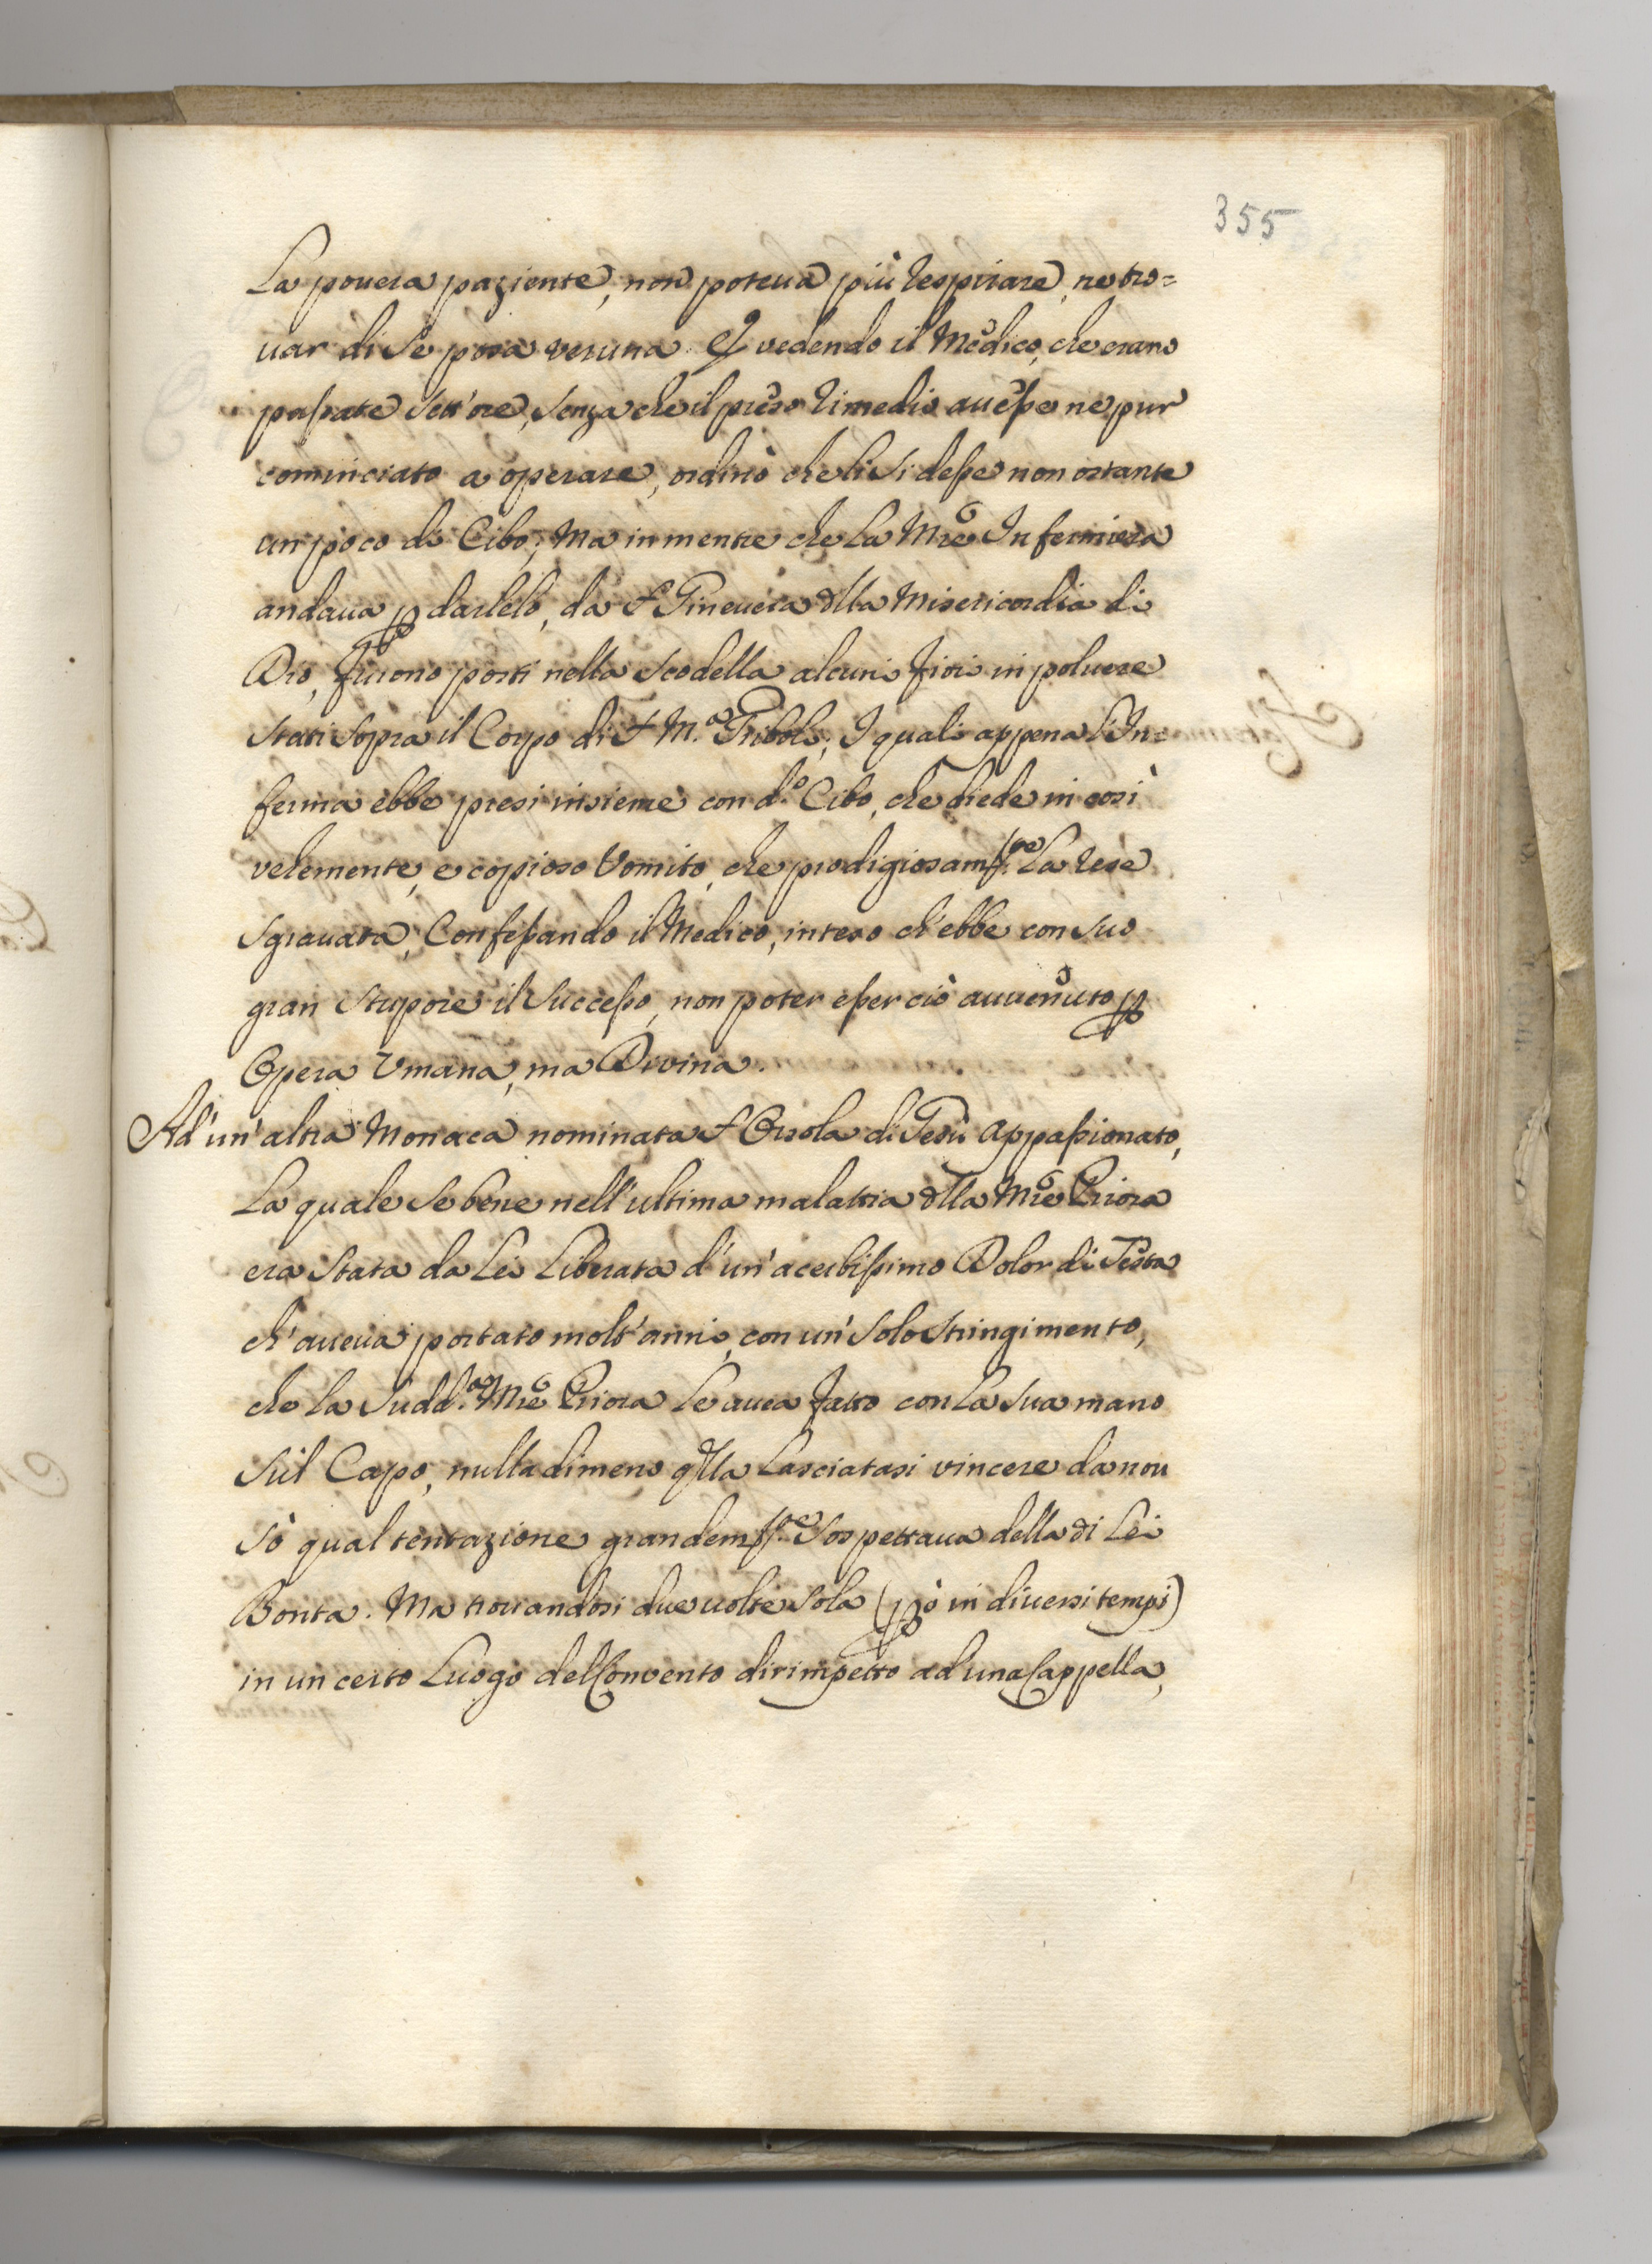 355
La pouera paziente, non poteua più respirare, ne tro=
uar di se posa veruna. E vedendo il Medico, che erano
passate sett'ore, senza che il preso rimedio auesse ne pur
cominciato a operare, ordinò che li si desse non ostante
un poco di Cibo; Ma in mentre che la Mre Infermiera
andaua p darlelo, da S. Gineuera dlla Misericordia di
Dio, furono posti nella Scodella alcuni fiori in poluere
stati sopra il Corpo di S. M.a Tribole; I quali appena l'In=
ferma ebbe presi insieme con d.o Cibo, che diede in così
vehemente, e copioso Vomito, che prodigiosam.te La rese
sgrauata; Confessando il Medico, inteso ch'ebbe con suo
gran Stupore il Successo, non poter esser ciò auuenuto p
Opera Vmana, ma Divina.
Ad'un'altra Monaca nominata S. Orsola di Giesù Appassionato,
La quale se bene nell'ultima malattia dlla Mre Priora
era stata da Lei Liberata d'un'acerbissimo Dolor di Testa
ch'aueua portato molt'anni, con un'solo Stringimento,
che la Sudd.a Mre Priora Le auea fatto con La sua mano
sul Capo, nulladimeno qlla Lasciatasi vincere da non
sò qual tentazione grandem.te Sospettaua della di Lei
Bontà. Ma trouandosi due uolte sola (pò in diuersi tempi)
in un certo Luogo del Convento dirimpetto ad una Cappella,